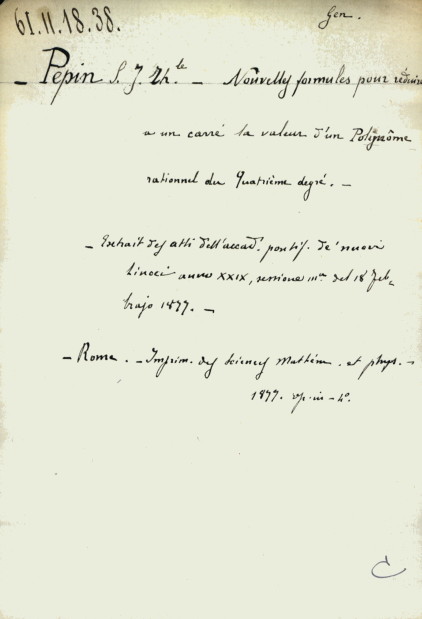 61.11.18.38.
Gen.
- Pepin S. J. Th.le - Nouvelles formules pour réduire
a un carré la valeur d'un Polynôme
rationnel du Quatrième degré. -
- Extrait des atti dell'accad. pontif. de' nuovi
Lincei anno XXIX, sessione IIIa del 18 Feb-
brajo 1877. -
- Rome. - Imprim. des Sciences Mathém. et phys. -
1877. op. in-4o.
C